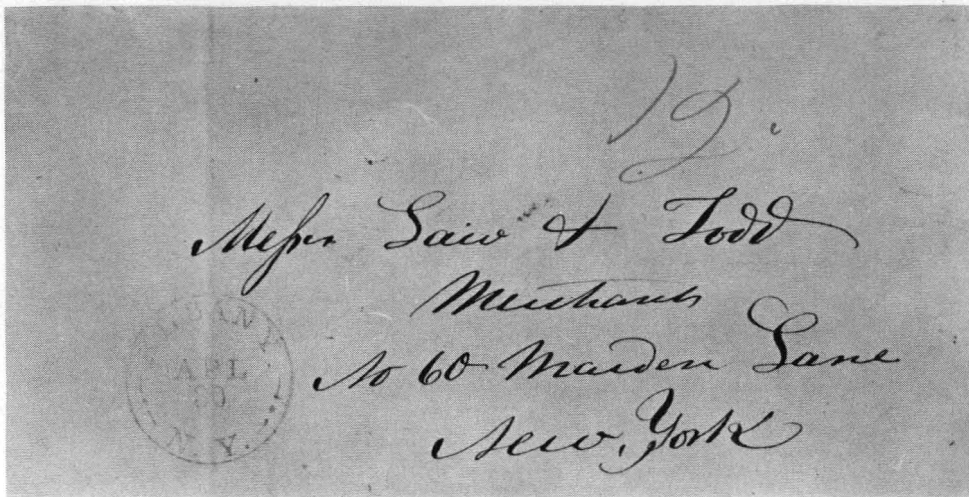 12.
Messrs Law & Todd
Merchants
No 60 Maiden Lane
New York
ALBANY
APL
N.Y.